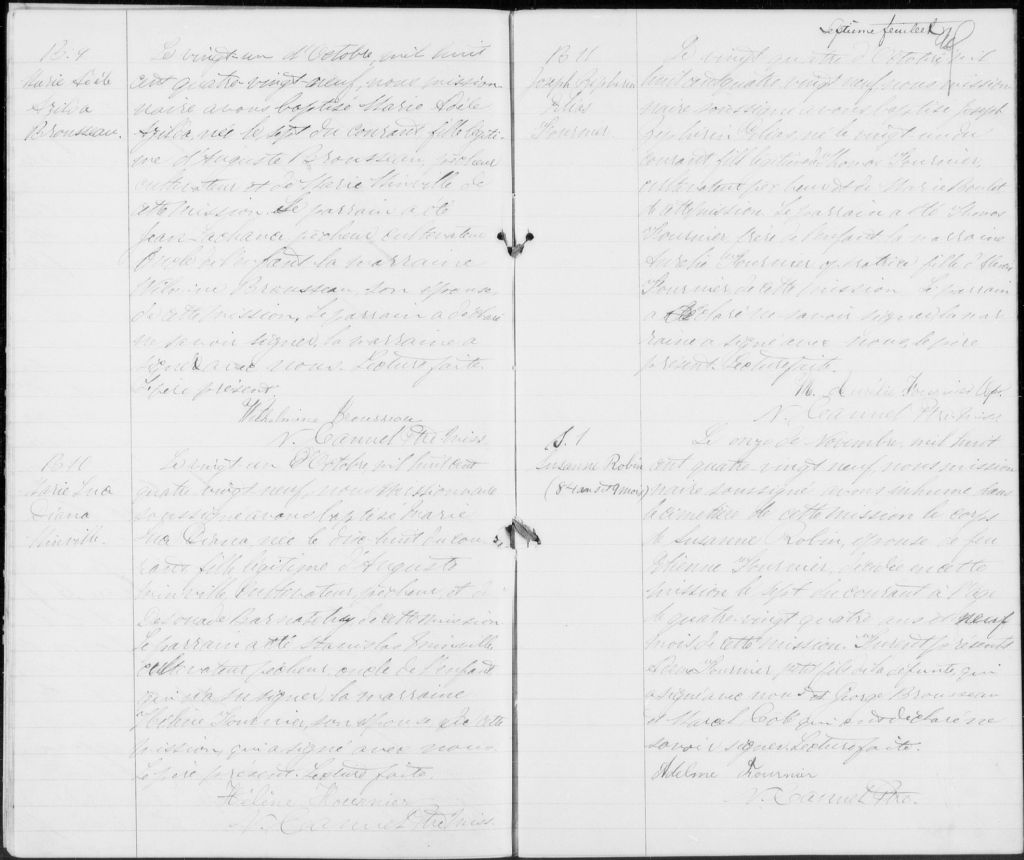 B. 9
Marie
Brousseau.
Le vingt-un d'Octobre, mil huit
cent quatre-vingt-neuf, nous mission-
naire avons baptisé Marie
née le sept du courant fille légiti-
me d'Auguste Brousseau, pêcheur
cultivateur et de Marie Minville de
cette mission. Le parrain a été
Jean Lachance pêcheur cultivateur
Oncle de l'enfant la marraine
Brousseau, son épouse,
de cette mission. Le parrain a déclaré
ne savoir signer, la marraine a
signé avec nous. Lecture faite.
Le père présent.
N. Ptre Miss
B. 10
Marie
Diana
Minville.
Le vingt-un d'Octobre mil huit cent
quatre vingt neuf, nous missionnaire
soussigné avons baptisé Marie
Diana, née le dix-huit du cou-
rant fille légitime d'Auguste
Minville Cultivateur, pêcheur et de
de cette mission
Le parrain a été Stanislas Minville,
cultivateur pêcheur, oncle de l'enfant
qui n'a su signer, la marraine
Hélène Fournier, son épouse de cette
mission, qui a signé avec nous
Le père présent. Lecture faite.
Hélène Fournier
N. Ptre Miss.
Septième feuillet
B 11
Joseph
Elias
Fournier
Le vingt quatre d'Octobre mil
huit cent quatre vingt neuf, nous mission
naire soussigné avons baptisé Joseph
Elias né le vingt un du
courant fils légitime de Thomas Fournier,
cultivateur pêcheur et de Marie Boulet
de cette mission. Le parrain a été Thomas
Fournier frère de l'enfant la marraine
Aurélie Fournier fille d'
Fournier de cette mission. Le parrain
a déclaré ne savoir signer la mar
raine a signé avec nous le père
présent. Lecture faite.
M. Aurélie Fournier
N. Ptre Miss.
S. 1
Susanne Robin
(84 ans et 9 mois)
Le onze de Novembre, mil huit
cent quatre vingt neuf, nous mission
naire soussigné avons inhumé dans
le cimetière de cette mission le corps
de Susanne Robin, épouse de feu
Etienne Fournier, décédée en cette
mission le sept du courant à l'âge
de quatre-vingt quatre ans et neuf
mois de cette mission. Furent présents
Fournier, petit fils de la défunte, qui
a signé avec nous et George Brousseau
et Marcel qui ont déclaré ne
savoir signer. Lecture faite.
Adelme Fournier
N. Ptre.